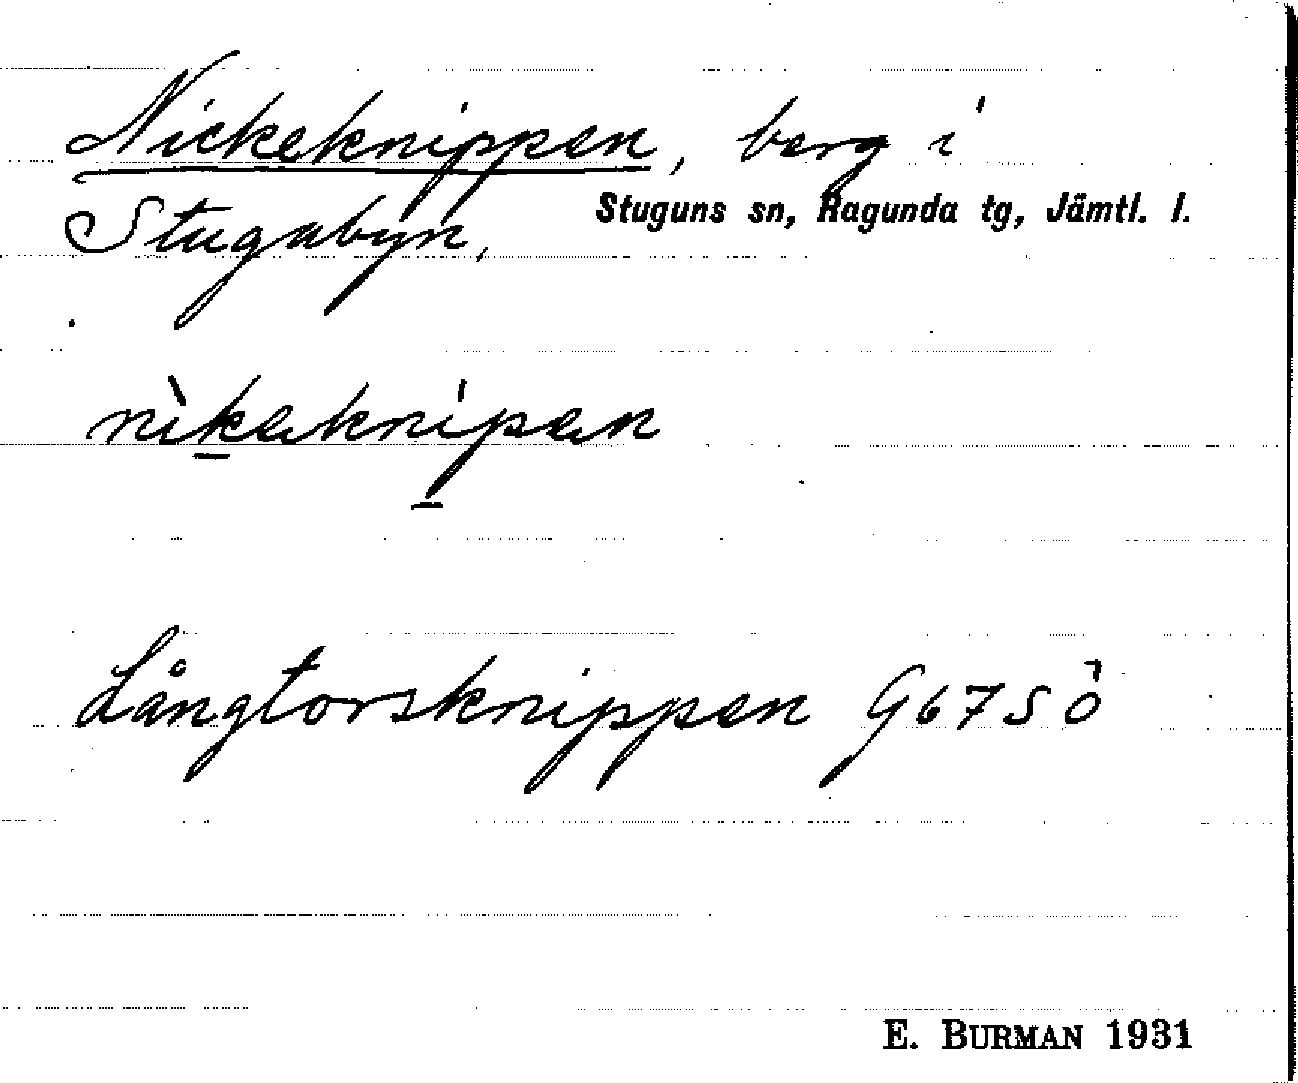 Nickeknippen, berg i
Stugabyn, Stuguns sn, Ragunda tg, Jämtl. l.
nìkeknipen
Långtorsknippen G67SÖ
E. BURMAN 1931